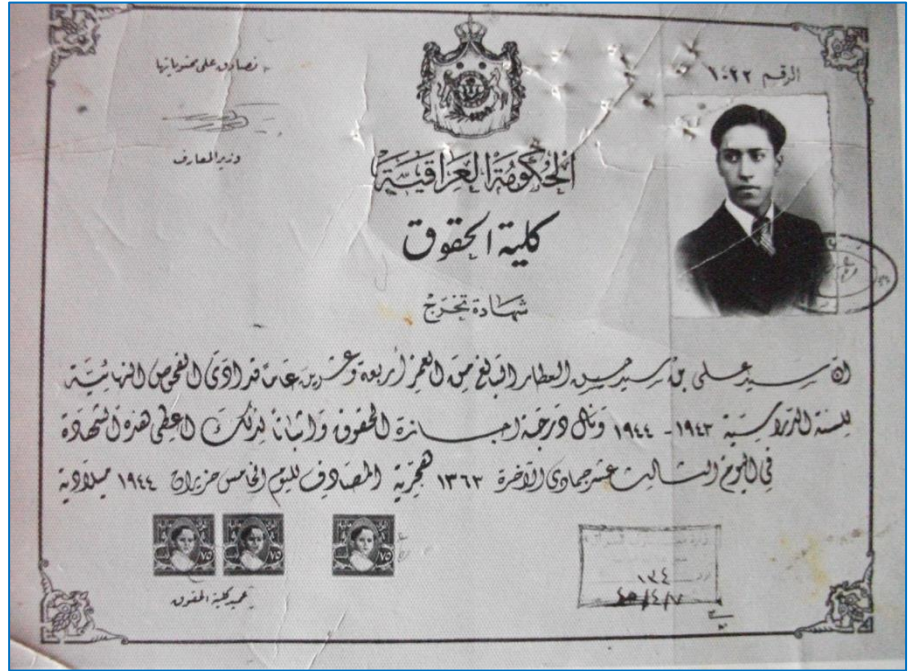 نصادق على محتوياتها
وزير المعارف
الرقم ١٠٢٢
الحكومة العراقية
كلية الحقوق
شهادة تخرج
ان سيد علي بن سيد حسين العطار البالغ من العمر أربعة وعشرين عاما قد ادى الفحوص النهائية
للسنة الدراسية ١٩٤٣ - ١٩٤٤ ونال درجة اجازة الحقوق واثباتا لذلك اعطي هذه الشهادة
في اليوم الثالث عشر جمادى الآخرة ١٣٦٣ هجرية المصادف لليوم الخامس حزيران ١٩٤٤ ميلادية
٧٥ ٧٥ ٧٥
عميد كلية الحقوق
١٣٤